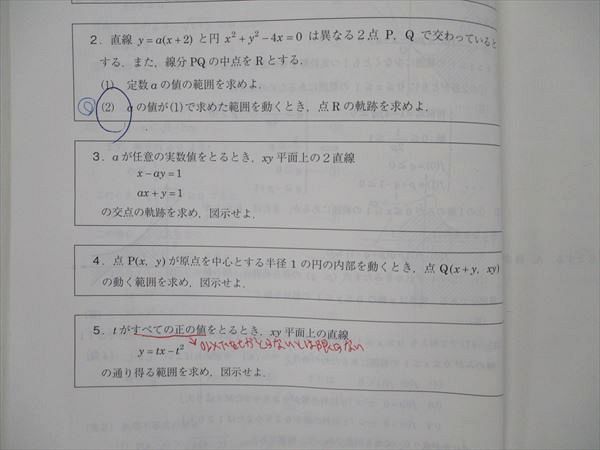 2. 直線 y=a(x+2) と円 x²+y²-4x=0 は異なる2点 P, Q で交わっていると
する. また, 線分PQの中点をRとする.
(1) 定数aの値の範囲を求めよ.
(2) aの値が(1)で求めた範囲を動くとき, 点Rの軌跡を求めよ.
3. aが任意の実数値をとるとき, xy平面上の2直線
x-ay=1
ax+y=1
の交点の軌跡を求め, 図示せよ.
4. 点P(x, y)が原点を中心とする半径1の円の内部を動くとき, 点Q(x+y, xy)
の動く範囲を求め, 図示せよ.
5. tがすべての正の値をとるとき, xy平面上の直線
y=tx-t²
の通り得る範囲を求め, 図示せよ.